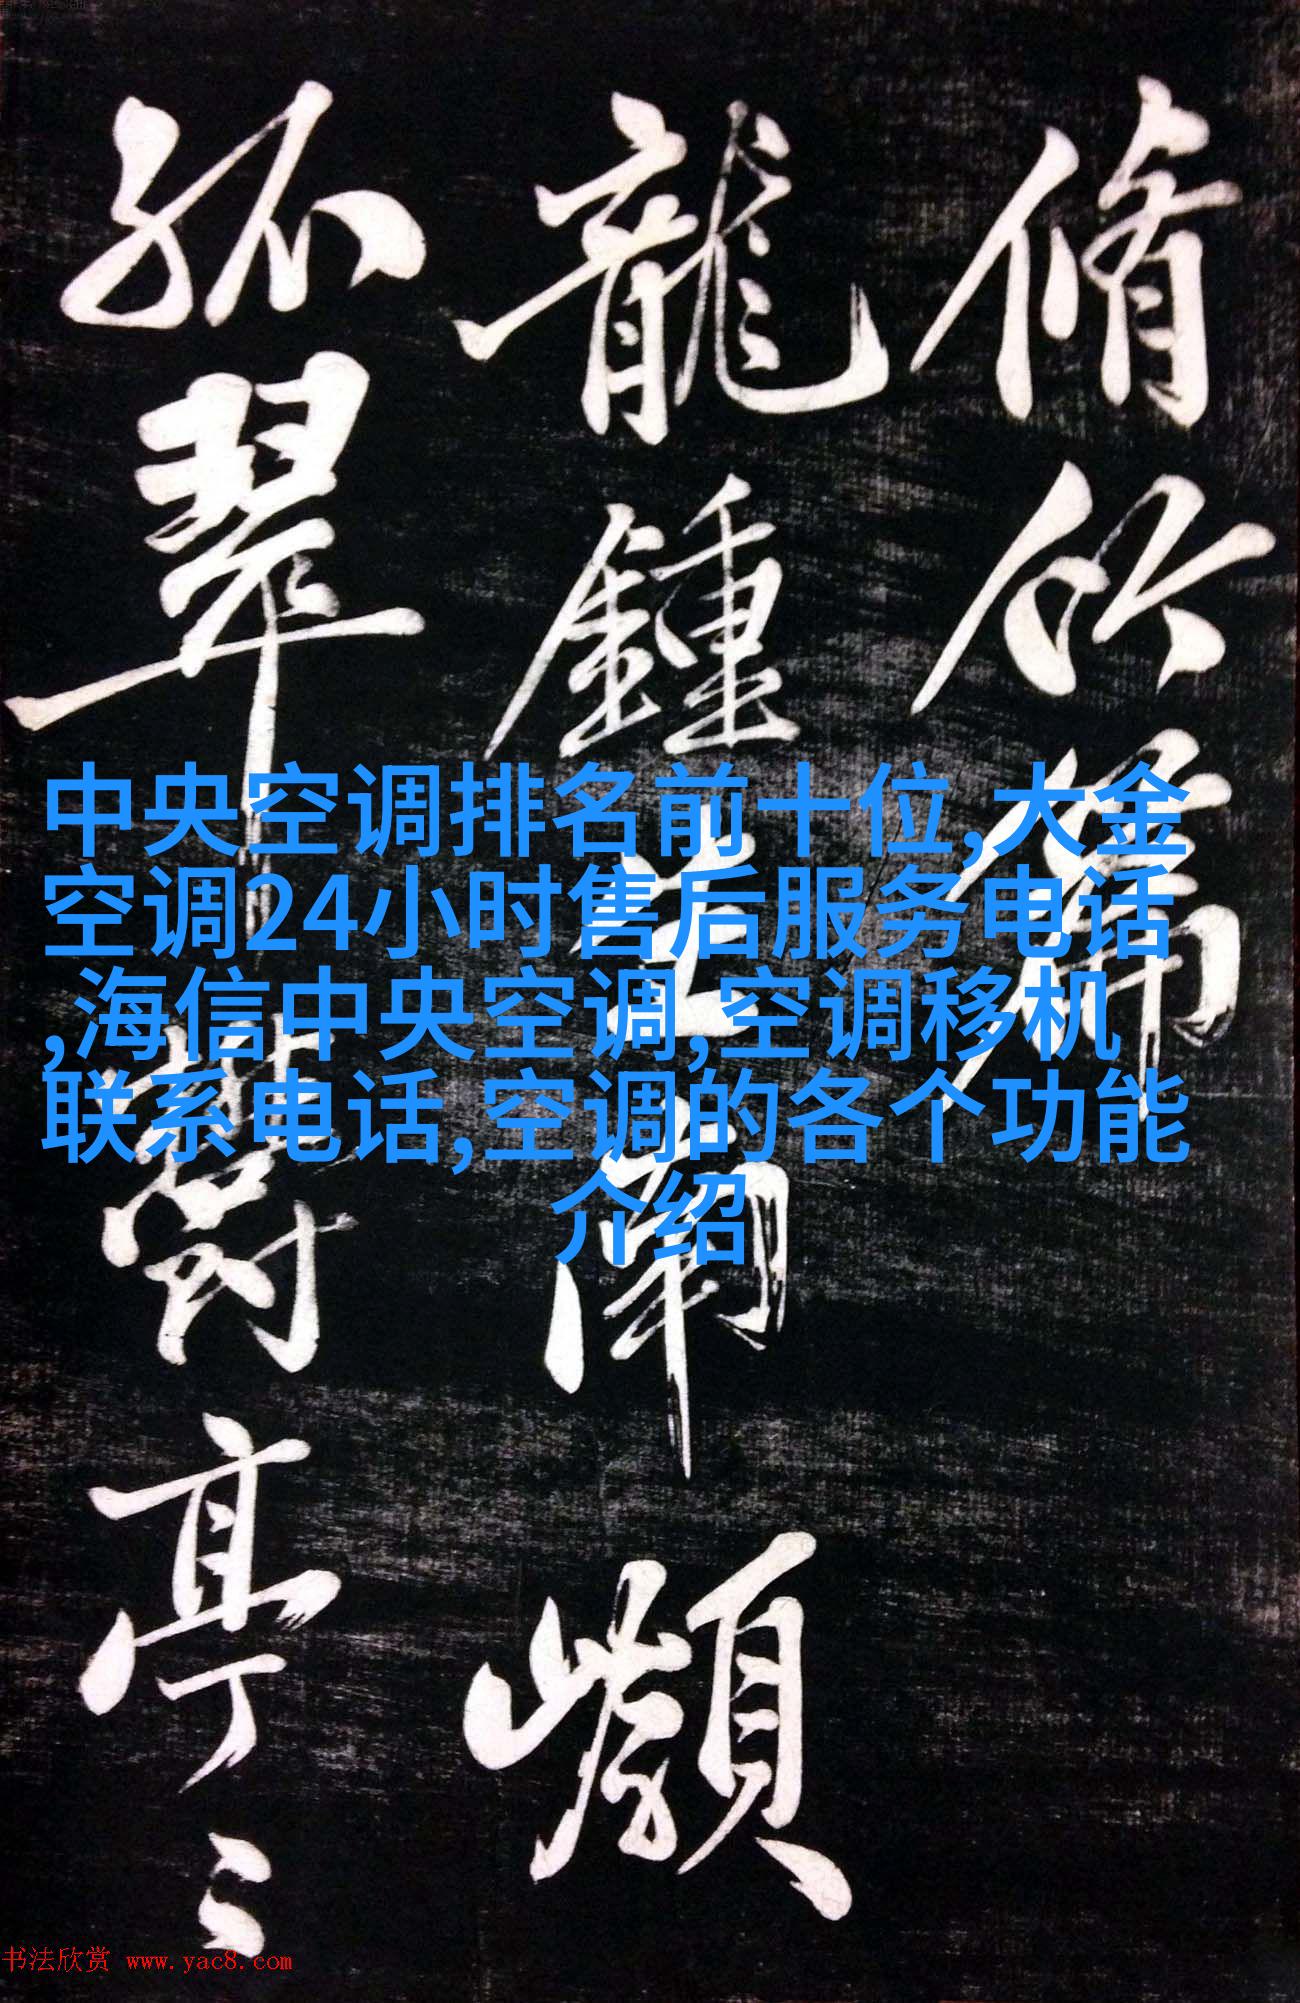 脩竹
龍鍾南巔
孤翠鬱亭〻
中央空调排名前十位,大金
空调24小时售后服务电话
,海信中央空调,空调移机
联系电话,空调的各个功能
介绍
书法欣赏 www.yac8.com